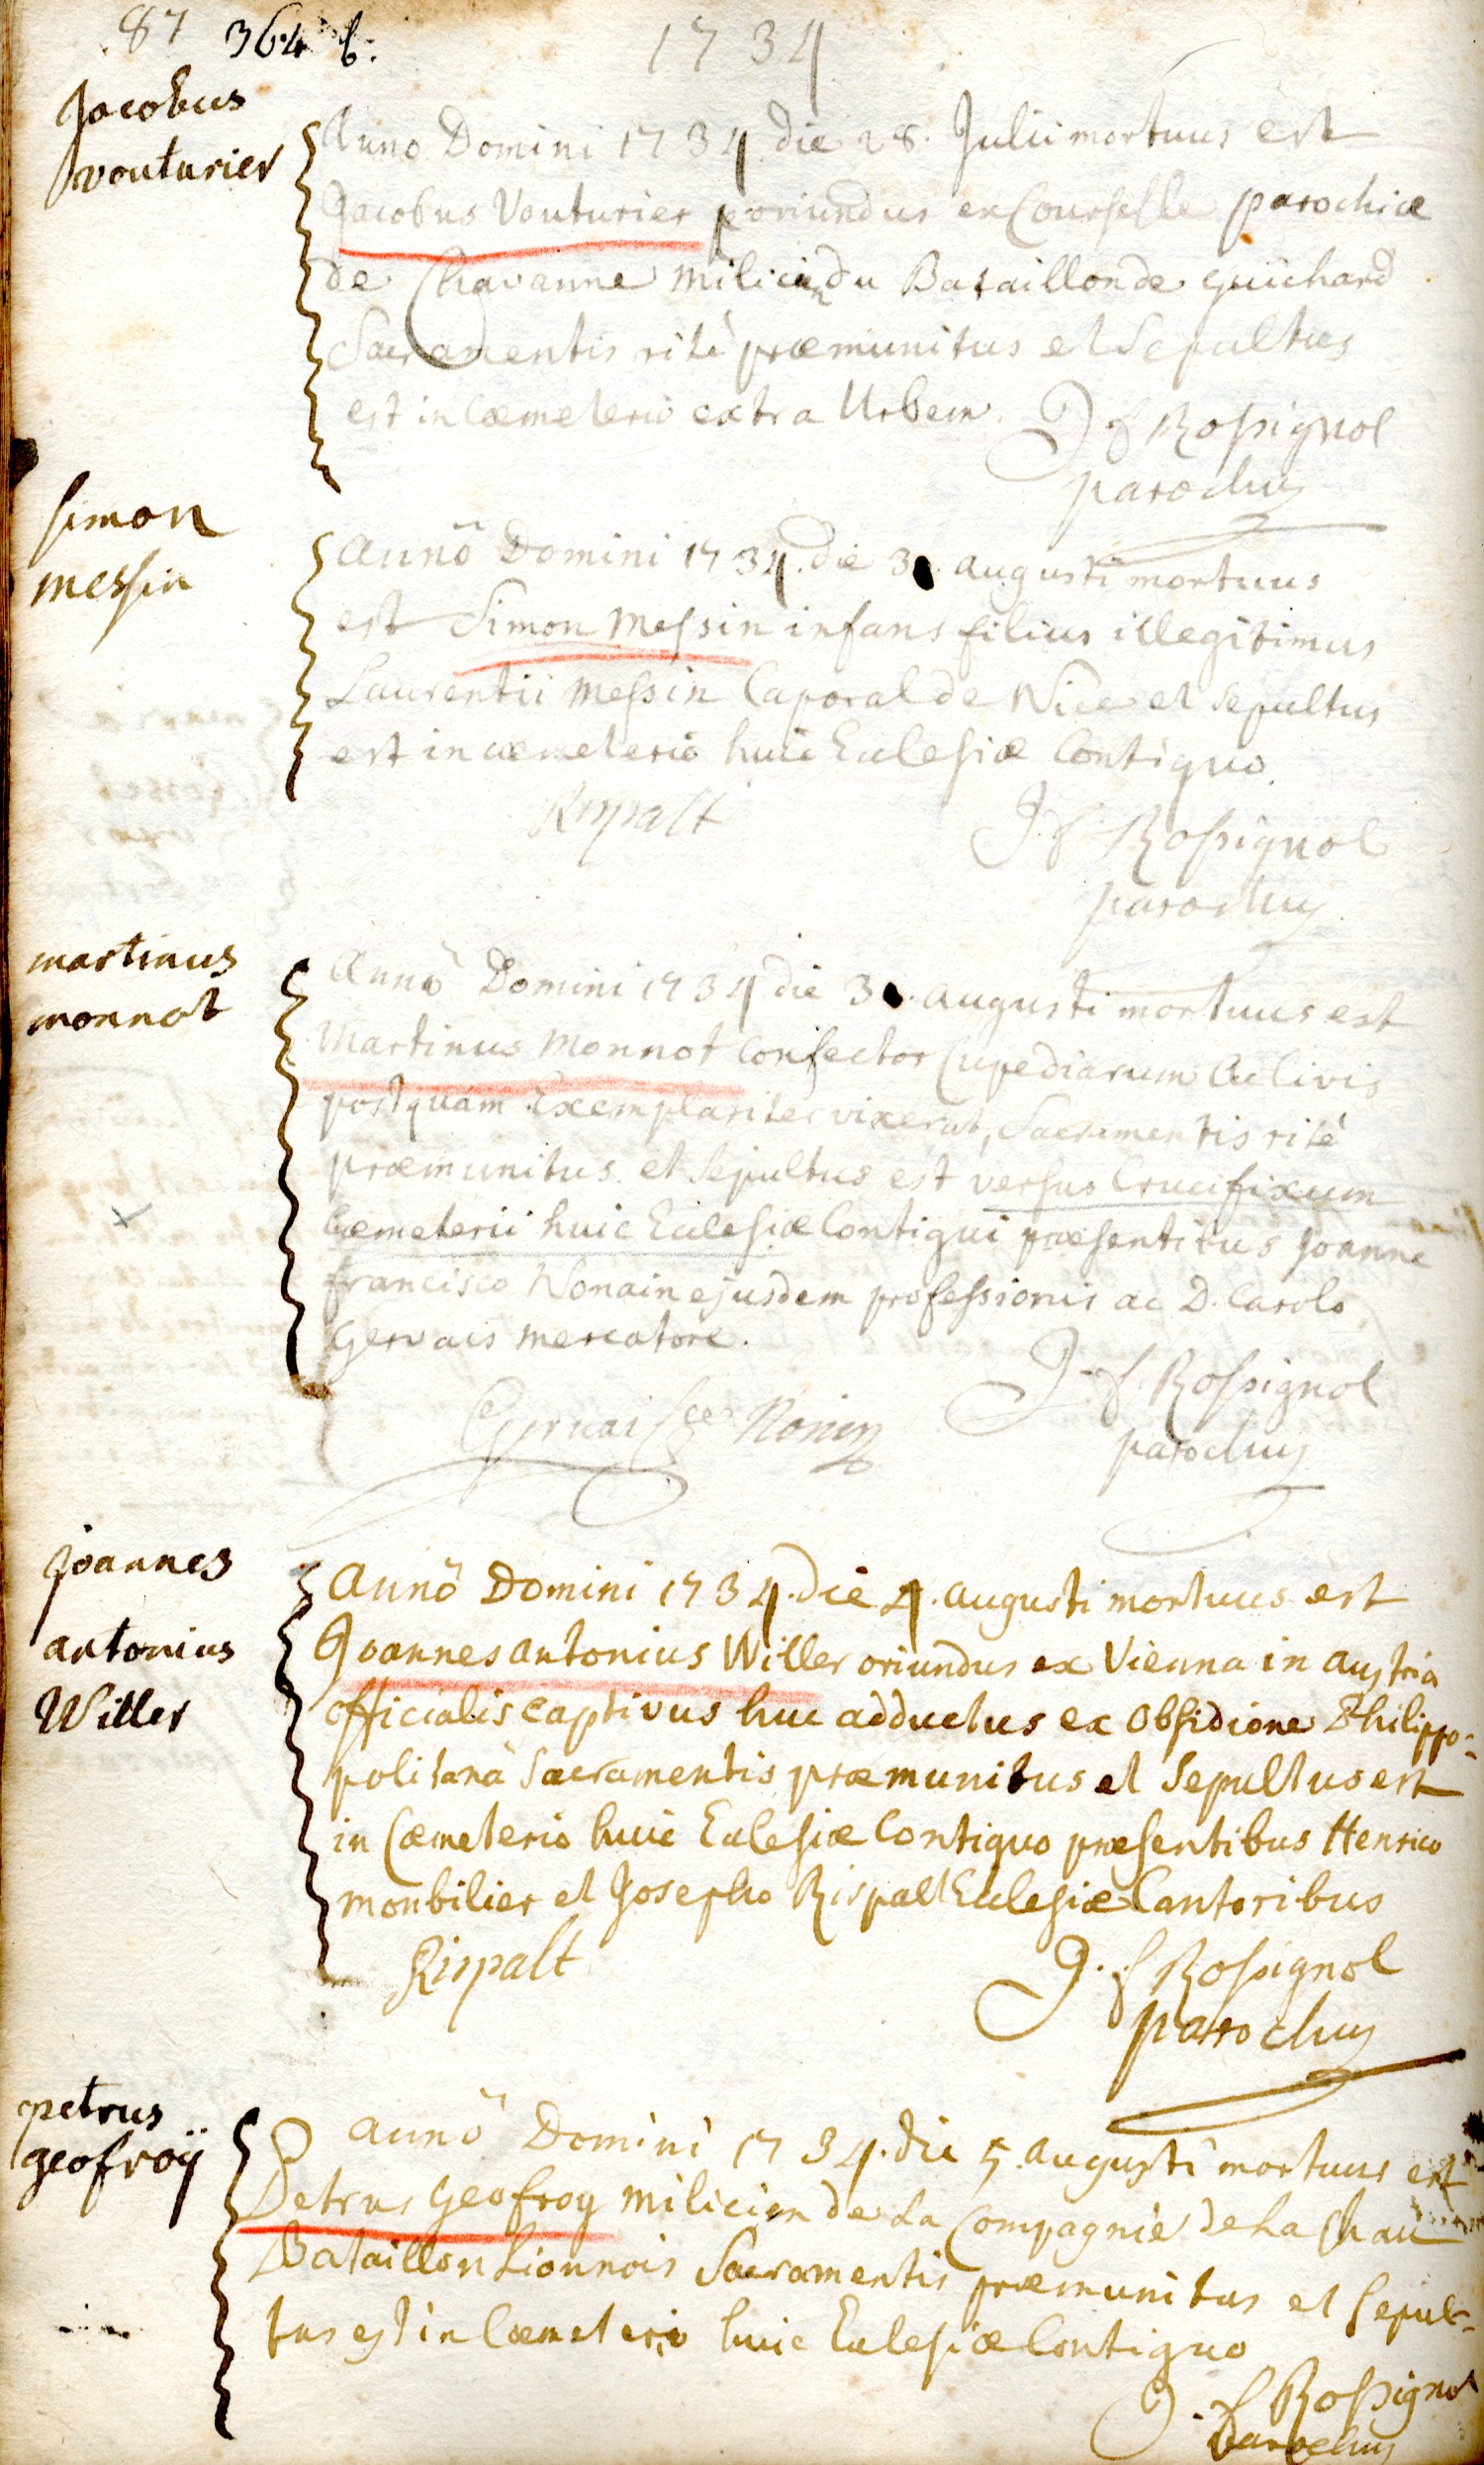 87 364 b.
1734
Jacobus
vouturier
Anno Domini 1734 die 28. Julii mortuus est
Jacobus Vouturier oriundus ex Courselle parochiæ
de Chavanne milicien du Bataillon de guichard
Sacramentis ritè præmunitus et Sepultus
est in Cœmeterio extra Urbem.
J f Rossignol
parochus
simon
messin
Annô Domini 1734. die 3. augusti mortuus
est Simon Messin infans filius illegitimus
Laurentii Messin Caporal de Nice et Sepultus
est in cœmeterio huic Ecclesiæ Contiguo.
Rispalt
J. f. Rossignol
parochus
martinus
monnot
Annô Domini 1734 die 3. augusti mortuus est
Martinus Monnot Confector Cupediarum ac Civis
postquam Exemplariter vixerat, Sacramentis ritè
præmunitus et Sepultus est versus Crucifixum
Cœmeterii huic Ecclesiæ Contigui præsentibus Joanne
francisco Nonain ejusdem professionis ac D. Carolo
Gervais mercatore.
J. f Rossignol
parochus
Joannes
antonius
Willer
Annô Domini 1734. die 4. augusti mortuus est
Joannes antonius Willer oriundus ex Vienna in austria
officialis captivus huc adductus ex Obsidione Philippo=
politanâ Sacramentis præmunitus et Sepultus est
in Cœmeterio huic Ecclesiæ Contiguo præsentibus Henrico
monbilier et Josepho Rispalt Ecclesiæ Cantoribus
Rispalt
J. f Rossignol
parochus
petrus
geofroÿ
annô Domini 1734. die 5. augusti mortuus est
Petrus Geofroy milicien de La Compagnie de La Chau
Bataillon Lionnois Sacramentis præmunitus et Sepul=
tus est in Cœmeterio huic Ecclesiæ Contiguo
J. f Rossignol
Parochus